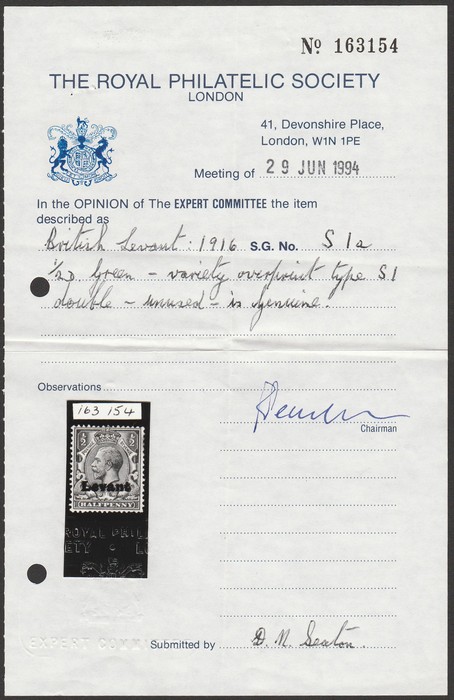 Nº 163154
THE ROYAL PHILATELIC SOCIETY
LONDON
41, Devonshire Place,
London, W1N 1PE
Meeting of 29 JUN 1994
In the OPINION of The EXPERT COMMITTEE the item
described as
British Levant: 1916 S.G. No. S1a
½D. Green - variety overprint type S1
double - unused - is genuine.
Observations
163 154
Levant
HALFPENNY
ROYAL PHIL
ETY
Chairman
EXPERT COMM
Submitted by D. N. Seaton.